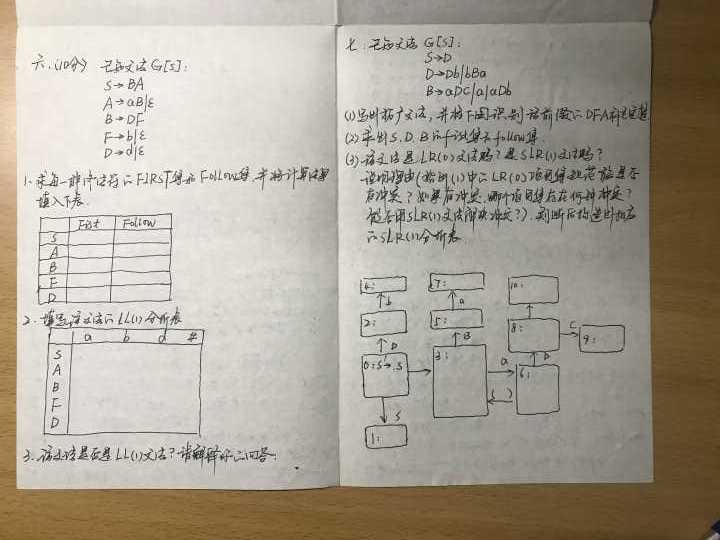 六、(10分) 已知文法G[S]:
S→BA
A→aB|ε
B→DF
F→b|ε
D→d|ε
1. 求每一非终结符的FIRST集和Follow集,并将计算结果
填入下表.
Fist Follow
S
A
B
F
D
2. 填写该文法的LL(1)分析表
a b d #
S
A
B
F
D
3. 该文法是否是LL(1)文法?请解释你的回答.
七. 已知文法G[S]:
S→D
D→Db|bBa
B→aDc|a|aDb
(1)写出拓广文法,并将下图识别活前缀的DFA补充完整
(2)求出S.D.B的First集和follow集
(3)该文法是LR(0)文法吗?是SLR(1)文法吗?
说明理由(指出(1)中的LR(0)项目集规范族是否
有冲突?如果有冲突,哪个项目集存在何种冲突?
能否用SLR(1)文法解决冲突?).判断后构造出相应
的SLR(1)分析表.
4: 7: 10:
b a
2: 5: 8: c 9:
D B D
0:S'→.S 3: a 6:
S
1: